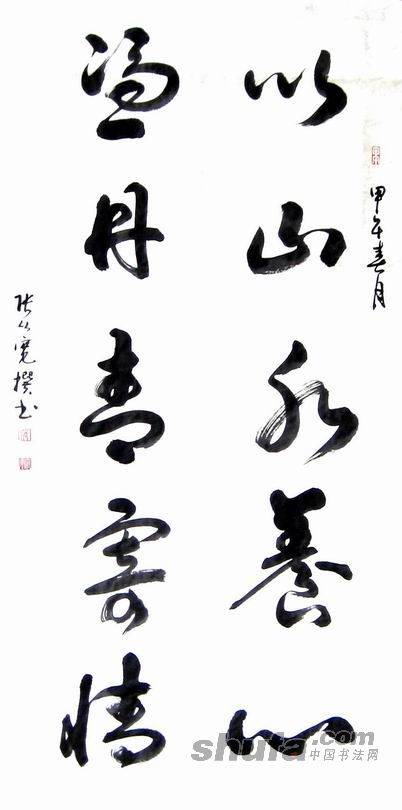 甲午春月
以山水養心
凴丹青寄情
张寬撰书
shufa.com
中国书法网